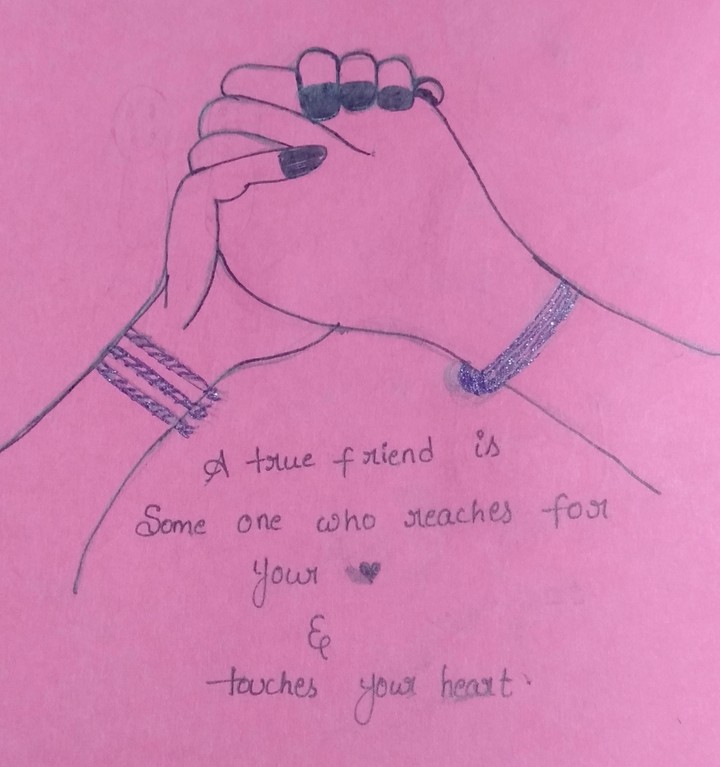 A true friend is
Some one who reaches for
your ♥
&
touches your heart.